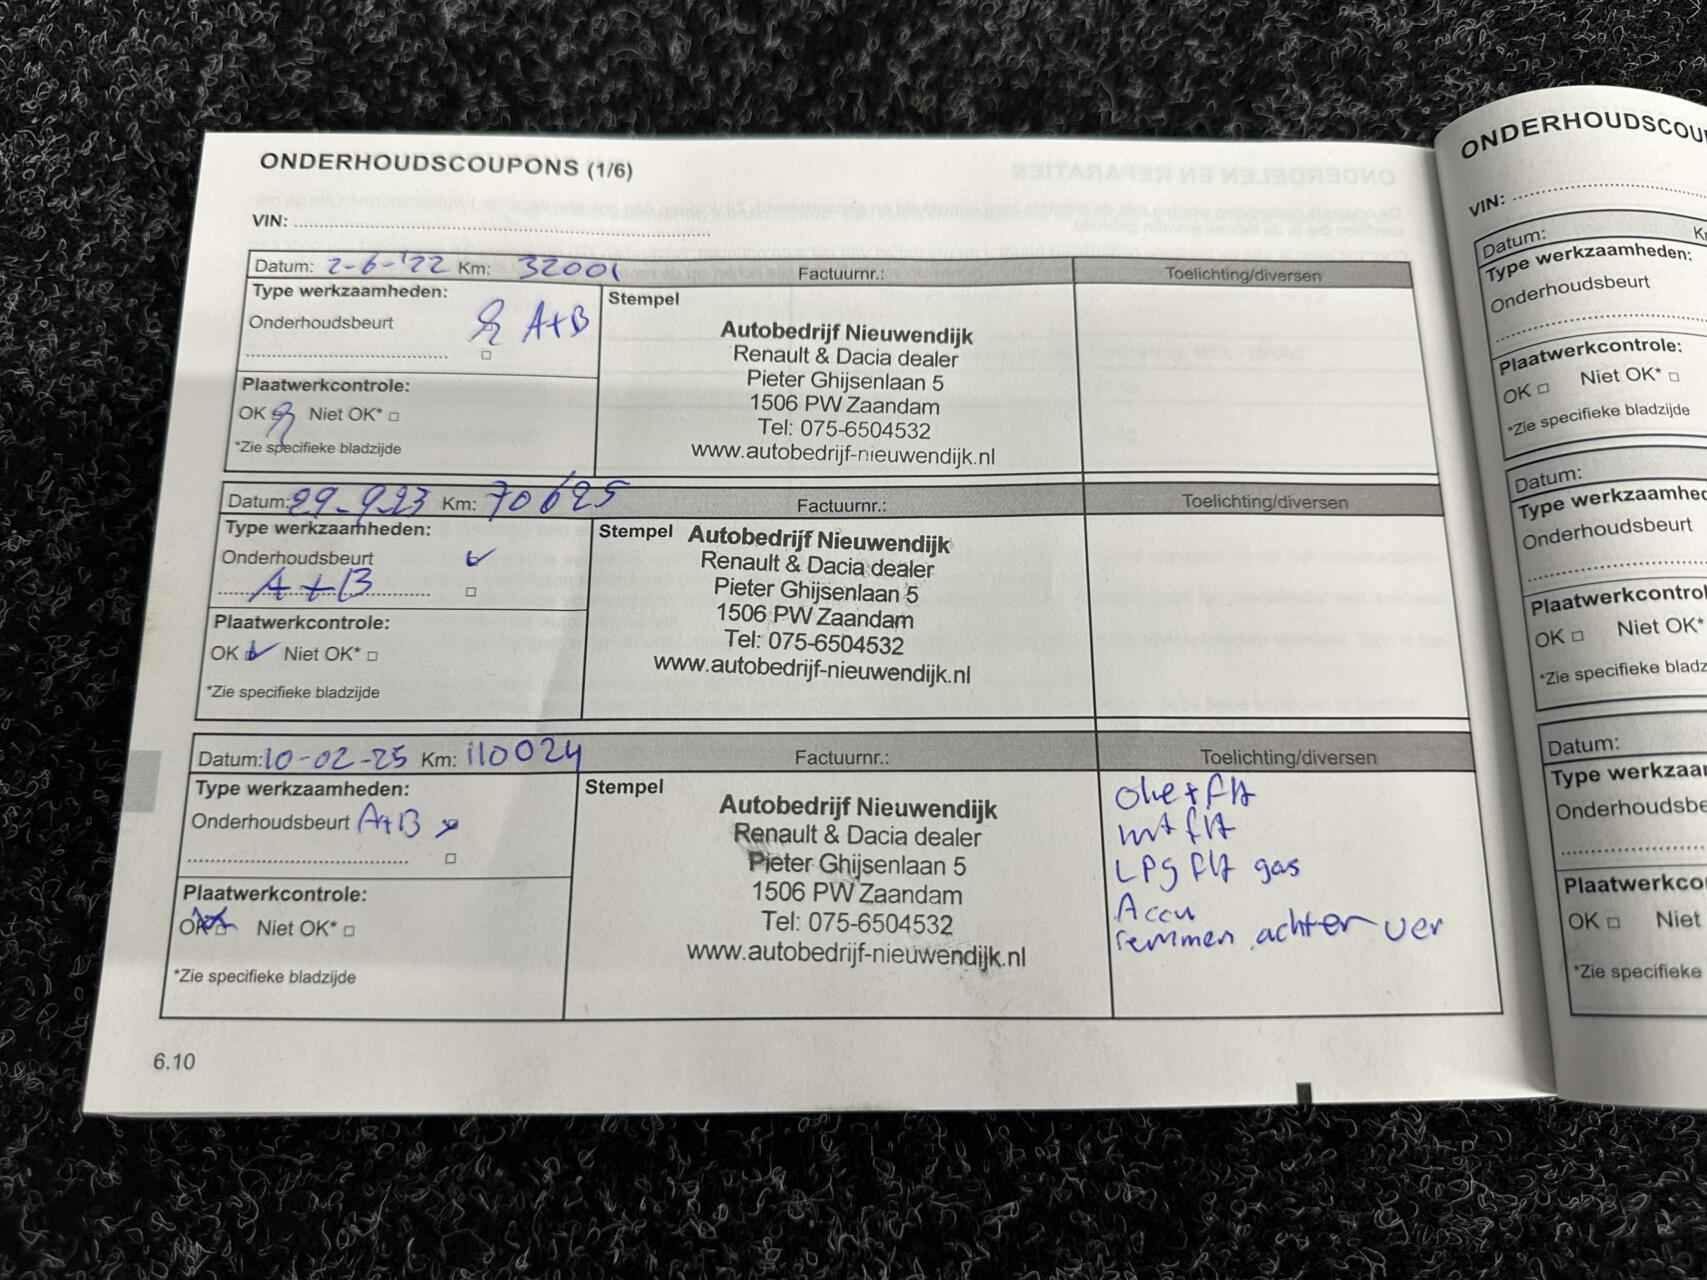 ONDERHOUDSCOUPONS (1/6)
VIN:
Datum: 2-6-'22 Km: 32001 Factuurnr.: Toelichting/diversen
Type werkzaamheden:
Onderhoudsbeurt A+B
Plaatwerkcontrole:
OK Niet OK*
*Zie specifieke bladzijde
Stempel
Autobedrijf Nieuwendijk
Renault & Dacia dealer
Pieter Ghijsenlaan 5
1506 PW Zaandam
Tel: 075-6504532
www.autobedrijf-nieuwendijk.nl
Datum: 29-9-23 Km: 70625 Factuurnr.: Toelichting/diversen
Type werkzaamheden:
Onderhoudsbeurt
A+B
Plaatwerkcontrole:
OK Niet OK*
*Zie specifieke bladzijde
Stempel
Autobedrijf Nieuwendijk
Renault & Dacia dealer
Pieter Ghijsenlaan 5
1506 PW Zaandam
Tel: 075-6504532
www.autobedrijf-nieuwendijk.nl
Datum: 10-02-25 Km: 110024 Factuurnr.: Toelichting/diversen
Type werkzaamheden:
Onderhoudsbeurt A+B
Plaatwerkcontrole:
OK Niet OK*
*Zie specifieke bladzijde
Stempel
Autobedrijf Nieuwendijk
Renault & Dacia dealer
Pieter Ghijsenlaan 5
1506 PW Zaandam
Tel: 075-6504532
www.autobedrijf-nieuwendijk.nl
Olie + flt
int flt
LPg flt gas
Accu
remmen achter ver
6.10
ONDERHOUDSCOU
VIN:
Datum:
Type werkzaamheden:
Onderhoudsbeurt
Plaatwerkcontrole:
OK Niet OK*
*Zie specifieke bladzijde
Datum:
Type werkzaamhed
Onderhoudsbeurt
Plaatwerkcontrol
OK Niet OK*
*Zie specifieke bladz
Datum:
Type werkzaa
Onderhoudsbe
Plaatwerkco
OK Niet
*Zie specifieke